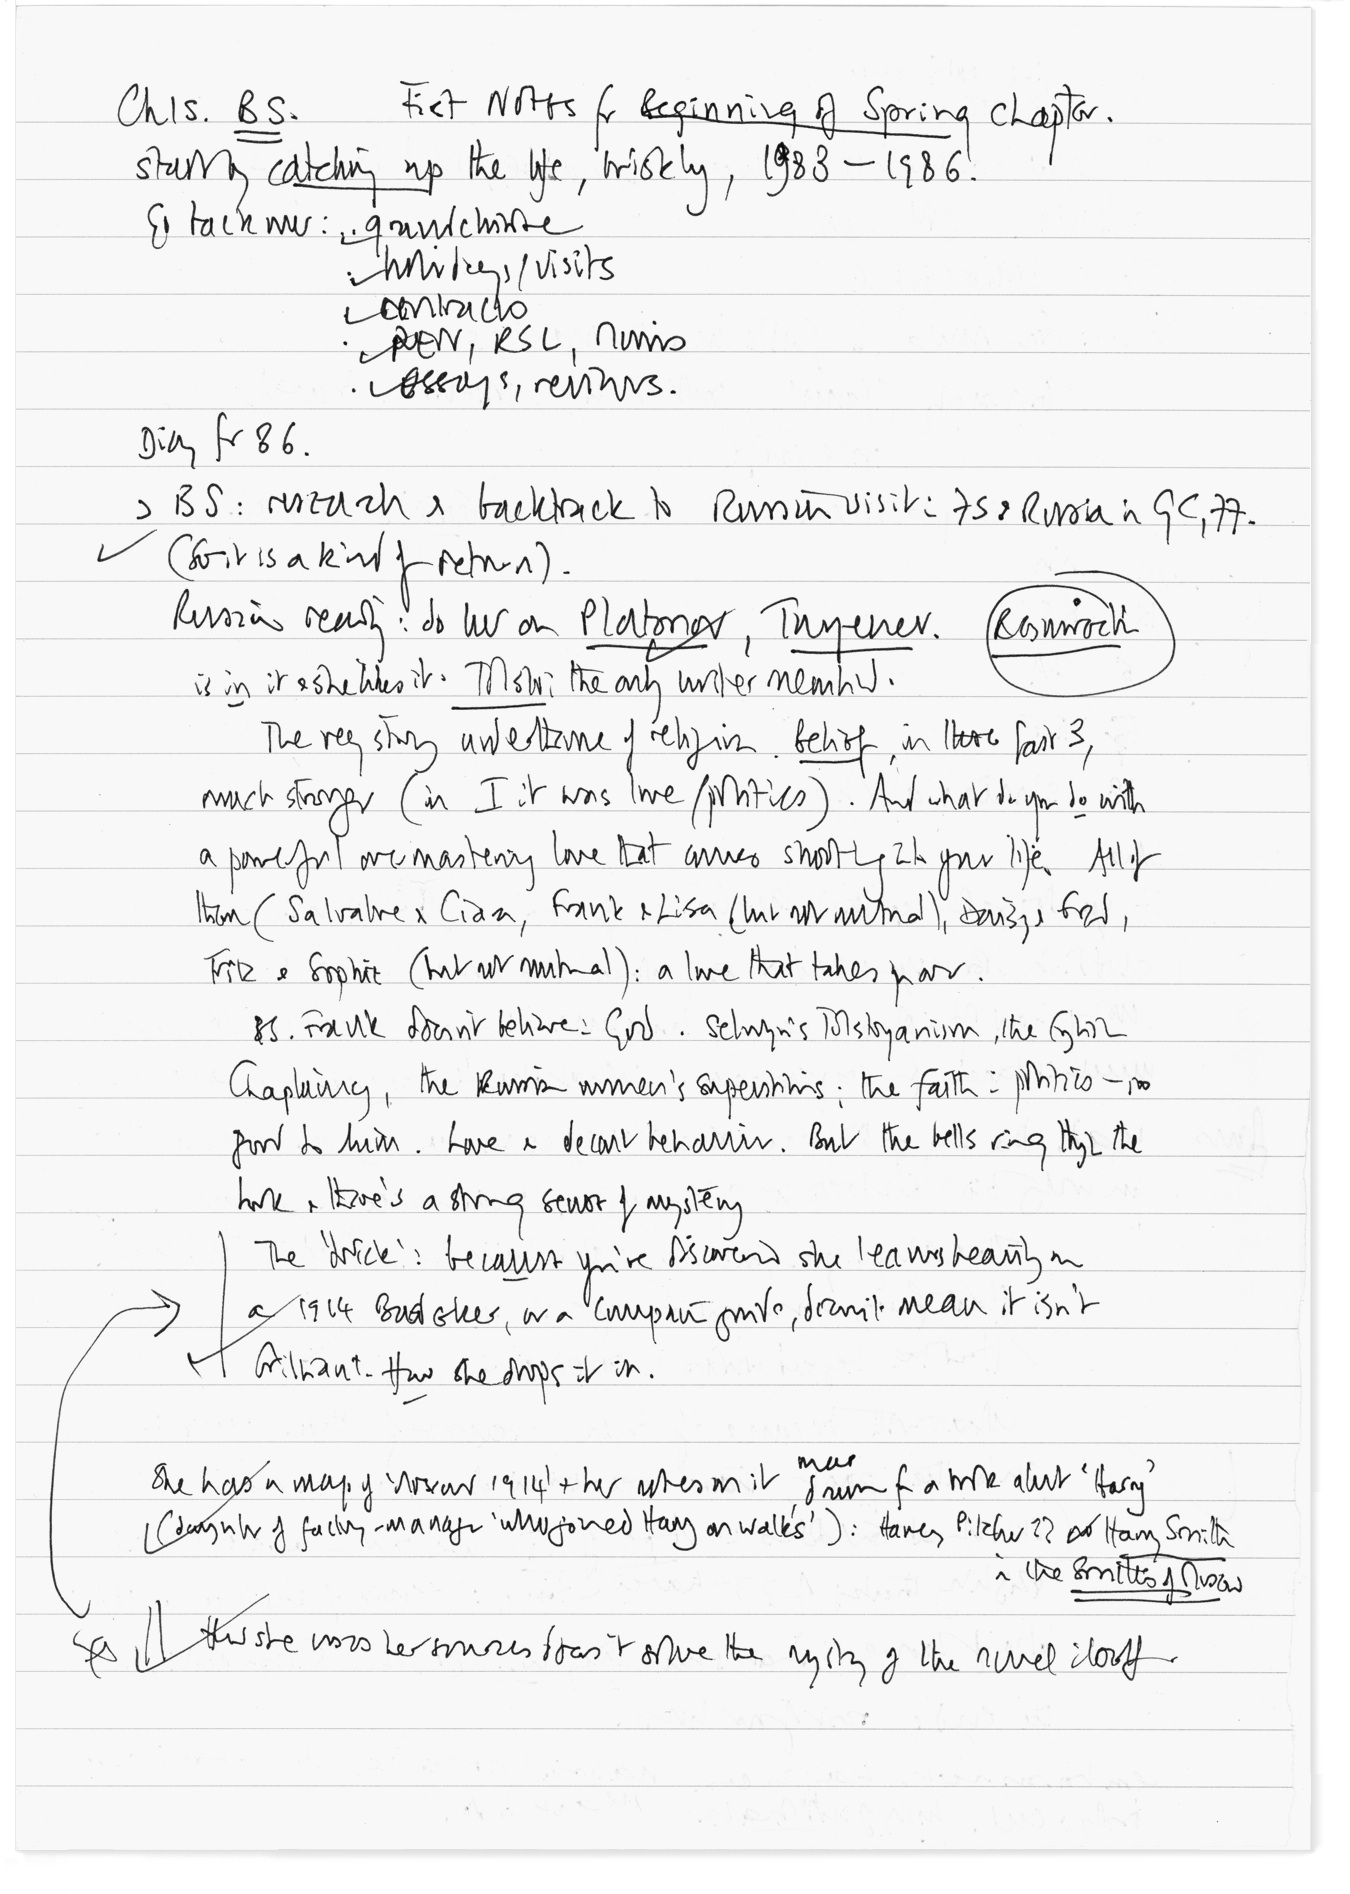 Ch15. BS. First Notes for Beginning of Spring chapter.
starting catching up the life, briskly, 1983–1986.
So back over: grandchildren
holidays/visits
contracts
PEN, RSL,
essays, reviews.
Diary for 86.
> BS: research & backtrack to Russian visit: 75 & Russia in GC, 77.
(So it is a kind of return).
Russian reading: do her on Platonov, Turgenev.
is in it & she likes it. Tolstoy the only writer mentioned.
The very strong undertone of religion. Belief, in these last 3,
much stronger (in I it was love/politics). And what do you do with
a powerful overmastering love that comes shortly in your life. All of
them (Salvatore & Chiara, Frank & Lisa (but not mutual), Daisy & Fred,
Fritz & Sophie (but not mutual): a love that takes power.
BS. Frank doesn't believe in God. Selwyn's Tolstoyanism, the English
Chaplaincy, the Russian women's superstitions; the faith in politics – no
good to him. Love & decent behaviour. But the bells ring thro the
book & there's a strong sense of mystery
The 'trick': because you've discovered she leans heavily on
a 1914 Baedeker, or a guide, doesn't mean it isn't
brilliant. How she drops it in.
She has a map of 'Moscow 1914' + her notes on it drawn for a book about 'Harry'
(daughter of factory-manager 'who joined Harry on walks'): Harvey Pitcher?? or Harry Smith
in the Smiths of Moscow
How she uses her sources doesn't solve the mystery of the novel itself.